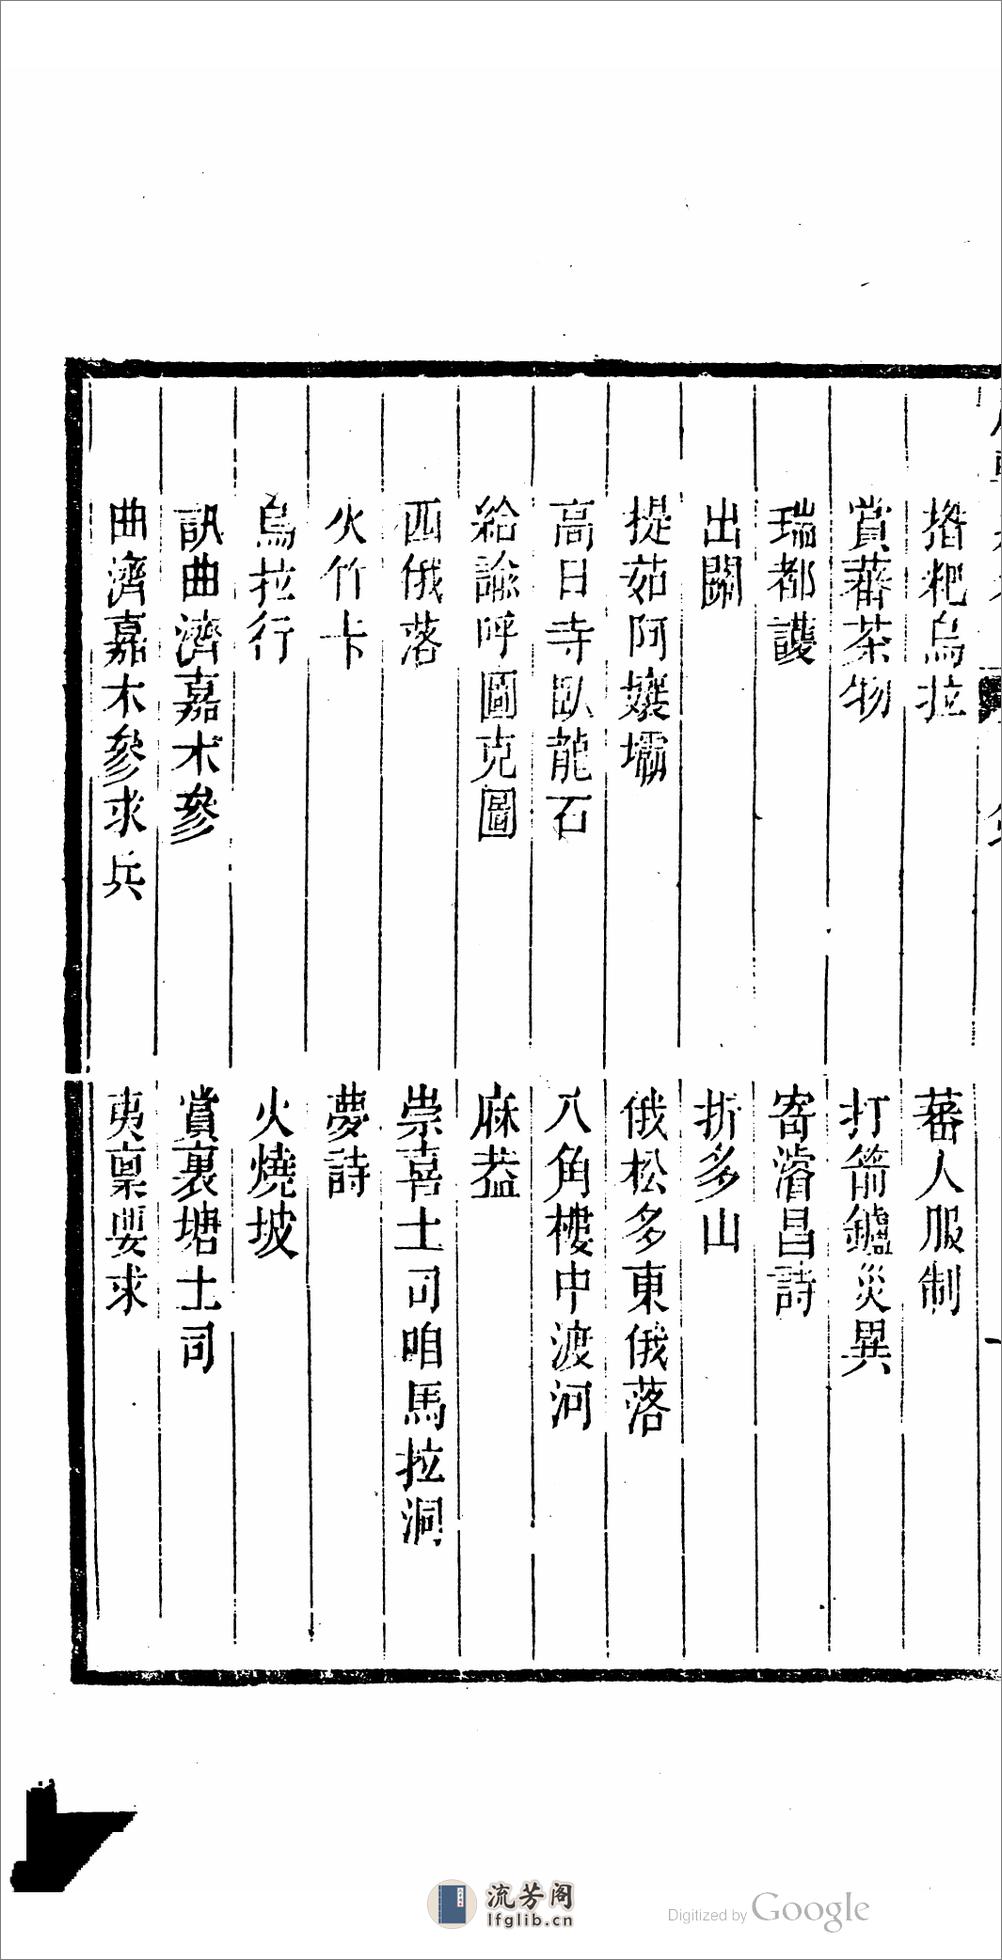 揝粑烏拉　蕃人服制
賞蕃茶物　打箭鑪災異
瑞都護　寄濬昌詩
出關　折多山
提茹阿孃壩　俄松多東俄落
高日寺臥龍石　八角樓中渡河
給諭呼圖克圖　麻葢
西俄落　崇喜土司咱馬拉洞
火竹卡　夢詩
烏拉行　火燒坡
訊曲濟嘉木參　賞裏塘土司
曲濟嘉木參求兵　夷稟要求
流芳阁
lfglib.cn
Digitized by Google